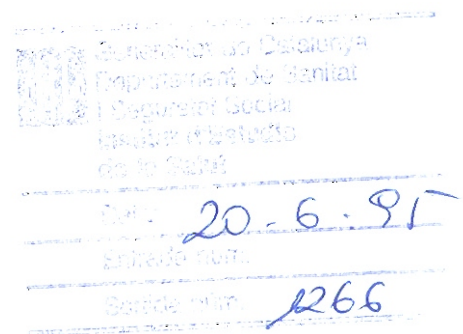 Generalitat de Catalunya
Departament de Sanitat
i Seguretat Social
Institut d'Estudis
de la Salut
Data 20 - 6 - 95
Entrada núm.
Sortida núm. 1266